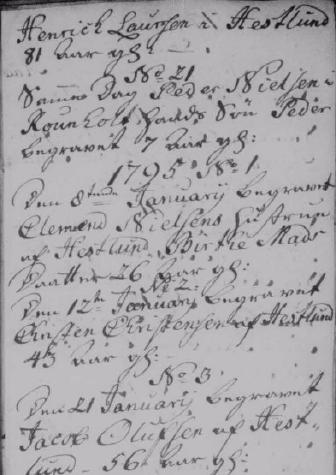 Henrich Laursen i Hestlund
81 aar gl:
No 21
Samme Dag Peder Nielsen i
Rounholt hands Søn Peder
begravet 7 aar gl:
1795 No 1.
Den 8tende Januarij begravet
Clemend Nielsens Hustrue
af Hestlund, Birthe Mads
Daatter 26 aar gl:
No 2.
Den 12te Januarij begravet
Christen Christensen af Hestlund
43 aar gl:
No 3
Den 21 Januarij begravet
Jacob Olufsen af Hest-
lund - 56 aar gl: